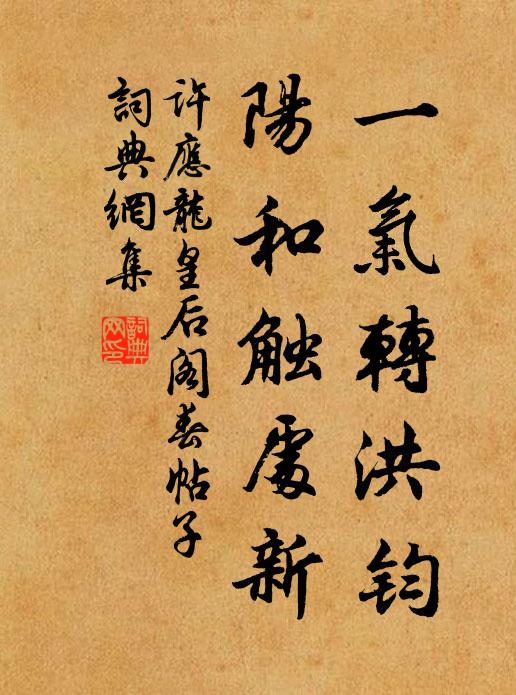 一氣轉洪鈞
陽和触處新
許應龍皇后阁春帖子
詞典網集
詞典網印